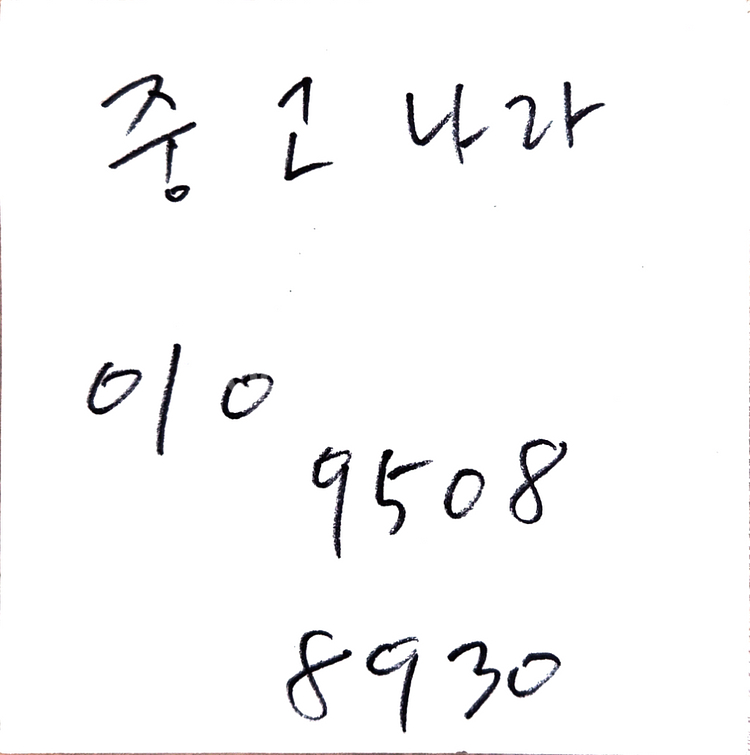 중고나라
010
9508
8930